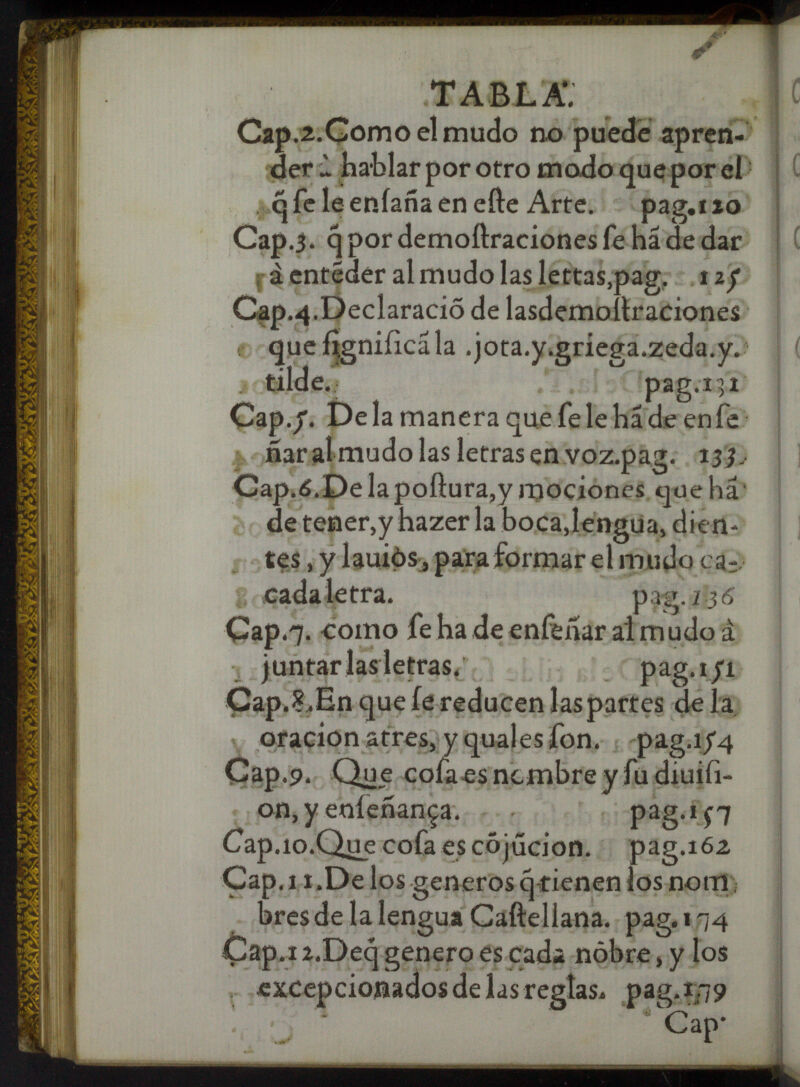 TABLA.
Cap.2.Como el mudo no puede apren-
der à hablar por otro modo que por el
q̃ ſe le enſaña en eſte Arte. pag.120
Cap.3. q̃ por demoſtraciones ſe há de dar
à entẽder al mudo las lettas,pag. 125
Cap.4.Declaraciõ de lasdemoſtraciones
que ſignificã la .jota.y.griega.zeda.y.
tilde. pag.131
Cap.5. De la manera que ſe le há de enſe
ñar al mudo las letras en voz.pag. 133.
Cap.6.De la poſtura,y mociones que há
de tener,y hazer la boca,lengua, dien-
tes, y lauiòs, para formar el mudo ca-
cada letra. pag.136
Cap.7. como ſe ha de enſeñar al mudo à
juntar las letras. pag.151
Cap.8.En que ſe reducen las partes de la
oracion atres, y quales ſon. pag.154
Cap.9. Que coſa es nombre y ſu diuiſi-
on, y enſeñança. pag.157
Cap.10.Que coſa es cõjũcion. pag.162
Cap.11.De los generos q̃ tienen los nom
bres de la lengua Caſtellana. pag.174
Cap.12.Deq̃ genero es cada nõbre, y los
excepcionados de las reglas. pag.179
Cap.